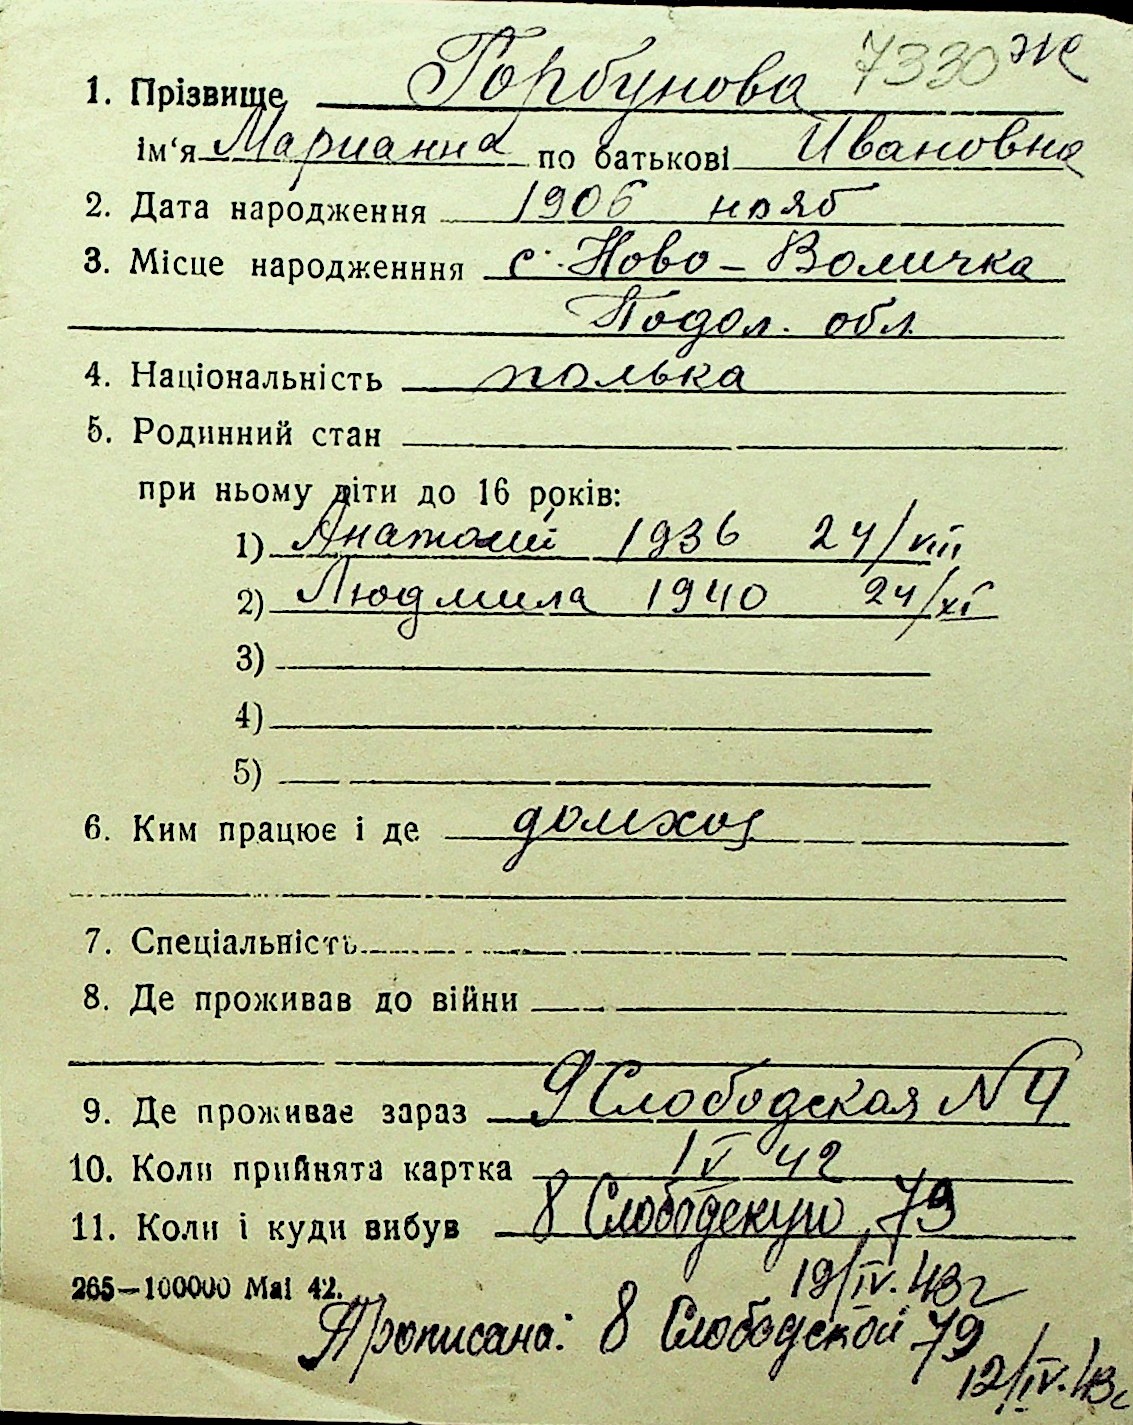 7330 ж
1. Прізвище Горбунова
ім‘я Марианна по батькові Ивановна
2. Дата народження 1906 нояб
3. Місце народженння с. Ново-Воличка
Подол. обл.
4. Національність полька
5. Родинний стан
при ньому діти до 16 років:
1) Анатолий 1936 24/VIII
2) Людмила 1940 24/XI
3)
4)
5)
6. Ким працює і де домхоз
7. Спеціальність
8. Де проживав до війни
9. Де проживає зараз 9 Слободская N 4
10. Коли прийнята картка 1 V 42
11. Коли і куди вибув 8 Слободскую 79
19/IV. 43 г
265—100000 Mai 42.
Прописана: 8 Слободской 79
12/IV. 43 г